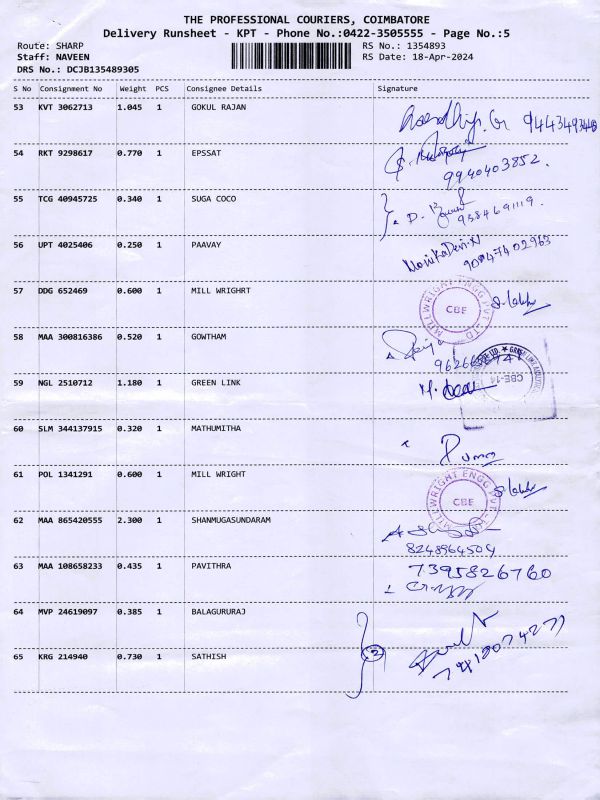 THE PROFESSIONAL COURIERS, COIMBATORE
Delivery Runsheet - KPT - Phone No.:0422-3505555 - Page No.:5
Route: SHARP RS No.: 1354893
Staff: NAVEEN RS Date: 18-Apr-2024
DRS No.: DCJB135489305
S No Consignment No Weight PCS Consignee Details Signature
53 KVT 3062713 1.045 1 GOKUL RAJAN
54 RKT 9298617 0.770 1 EPSSAT
9940403852.
55 TCG 40945725 0.340 1 SUGA COCO
56 UPT 4025406 0.250 1 PAAVAY
MonikaDevi.N
57 DDG 652469 0.600 1 MILL WRIGHRT
MILLWRIGHT ENGG PVT. LTD
CBE
58 MAA 300816386 0.520 1 GOWTHAM
59 NGL 2510712 1.180 1 GREEN LINK
CBE-14
60 SLM 344137915 0.320 1 MATHUMITHA
61 POL 1341291 0.600 1 MILL WRIGHT
MILLWRIGHT ENGG PVT.
CBE
62 MAA 865420555 2.300 1 SHANMUGASUNDARAM
8248964504
63 MAA 108658233 0.435 1 PAVITHRA
7395826760
64 MVP 24619097 0.385 1 BALAGURURAJ
2
65 KRG 214940 0.730 1 SATHISH